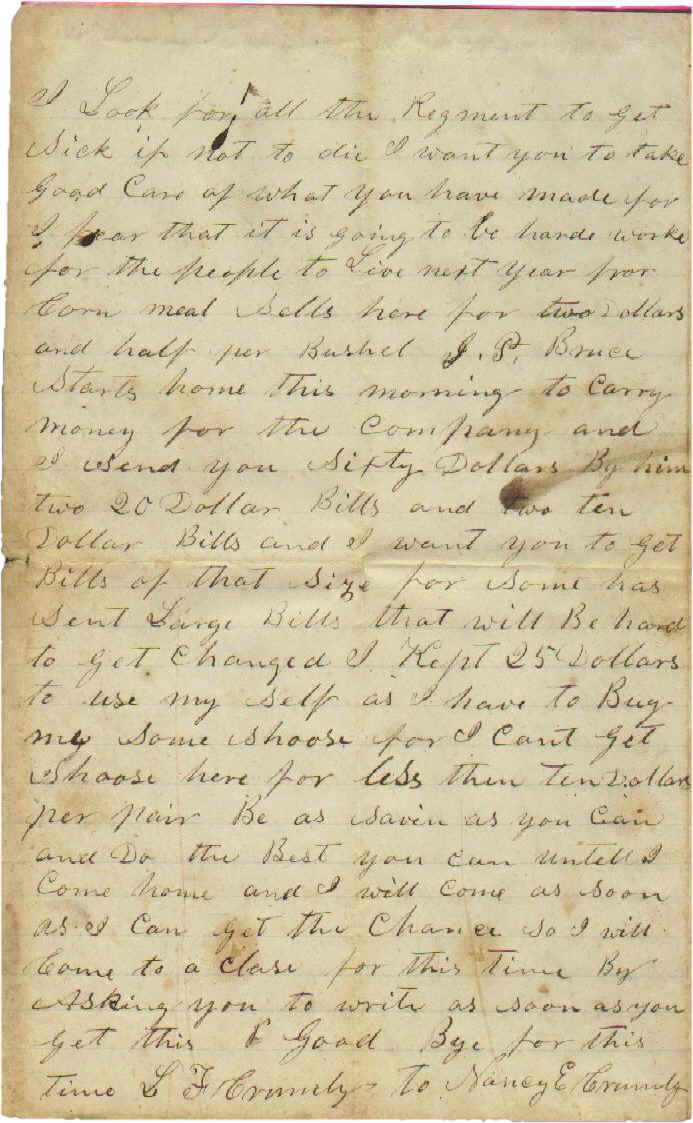 I Look for all the Regment to get
Sick if not to die I want you to take
good Care of what you have made for
I fear that it is going to be harde worke
for the people to Live next Year for
Corn meal Sells here for two Dollars
and half per Bushel J. P. Bruce
Starts home this morning to Carry
money for the Company and
I Send you Sixty Dollars By him
two 20 Dollar Bills and two ten
Dollar Bills and I want you to get
Bills of that Size for Some has
Sent Large Bills that will Be hard
to get Changed I Kept 25 Dollars
to use my Self as I have to Buy
me Some Shoose for I Cant get
Shoose here for less then ten Dollars
per pair Be as Savin as you Can
and Do the Best you can untell I
Come home and I will Come as Soon
as I Can get the Chance So I will
Come to a close for this time By
Asking you to write as Soon as you
get this Good Bye for this
time L F Crumly to Nancy E Crumly